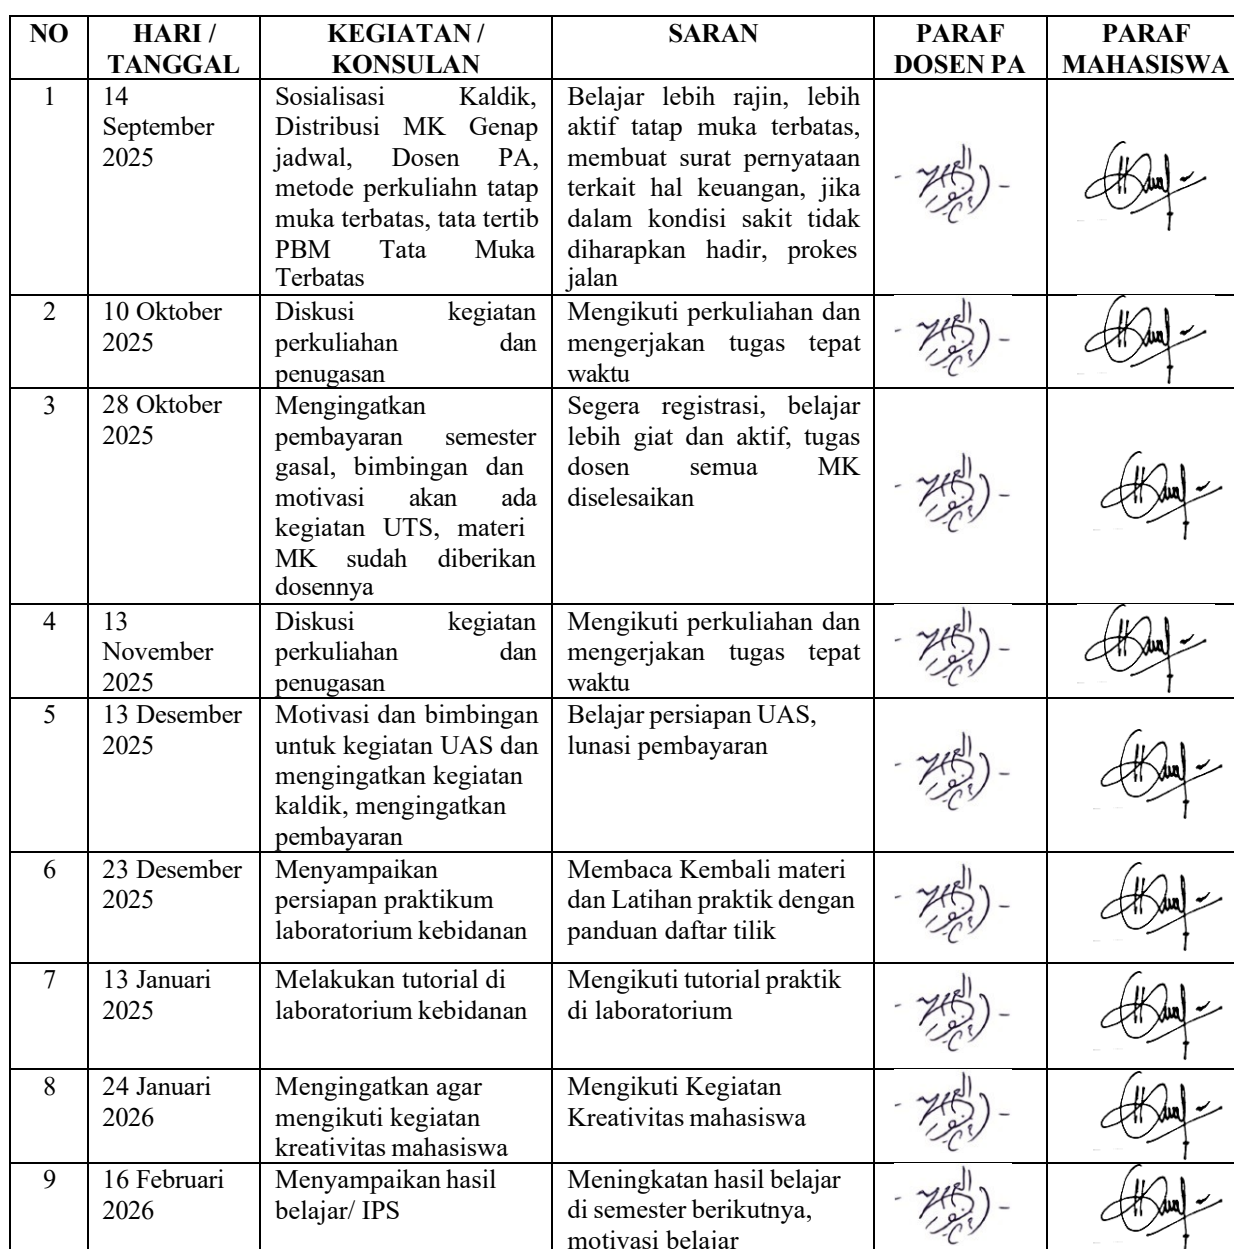 NO
HARI /
TANGGAL
KEGIATAN /
KONSULAN
SARAN
PARAF
DOSEN PA
PARAF
MAHASISWA
1
14
September
2025
Sosialisasi Kaldik,
Distribusi MK Genap
jadwal, Dosen PA,
metode perkuliahn tatap
muka terbatas, tata tertib
PBM Tata Muka
Terbatas
Belajar lebih rajin, lebih
aktif tatap muka terbatas,
membuat surat pernyataan
terkait hal keuangan, jika
dalam kondisi sakit tidak
diharapkan hadir, prokes
jalan
2
10 Oktober
2025
Diskusi kegiatan
perkuliahan dan
penugasan
Mengikuti perkuliahan dan
mengerjakan tugas tepat
waktu
3
28 Oktober
2025
Mengingatkan
pembayaran semester
gasal, bimbingan dan
motivasi akan ada
kegiatan UTS, materi
MK sudah diberikan
dosennya
Segera registrasi, belajar
lebih giat dan aktif, tugas
dosen semua MK
diselesaikan
4
13
November
2025
Diskusi kegiatan
perkuliahan dan
penugasan
Mengikuti perkuliahan dan
mengerjakan tugas tepat
waktu
5
13 Desember
2025
Motivasi dan bimbingan
untuk kegiatan UAS dan
mengingatkan kegiatan
kaldik, mengingatkan
pembayaran
Belajar persiapan UAS,
lunasi pembayaran
6
23 Desember
2025
Menyampaikan
persiapan praktikum
laboratorium kebidanan
Membaca Kembali materi
dan Latihan praktik dengan
panduan daftar tilik
7
13 Januari
2025
Melakukan tutorial di
laboratorium kebidanan
Mengikuti tutorial praktik
di laboratorium
8
24 Januari
2026
Mengingatkan agar
mengikuti kegiatan
kreativitas mahasiswa
Mengikuti Kegiatan
Kreativitas mahasiswa
9
16 Februari
2026
Menyampaikan hasil
belajar/ IPS
Meningkatan hasil belajar
di semester berikutnya,
motivasi belajar